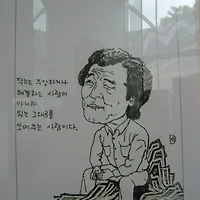 작가는 주장하거나
해결하는 사람이
아니라
있는 그대로를
보여주는 사람이다.